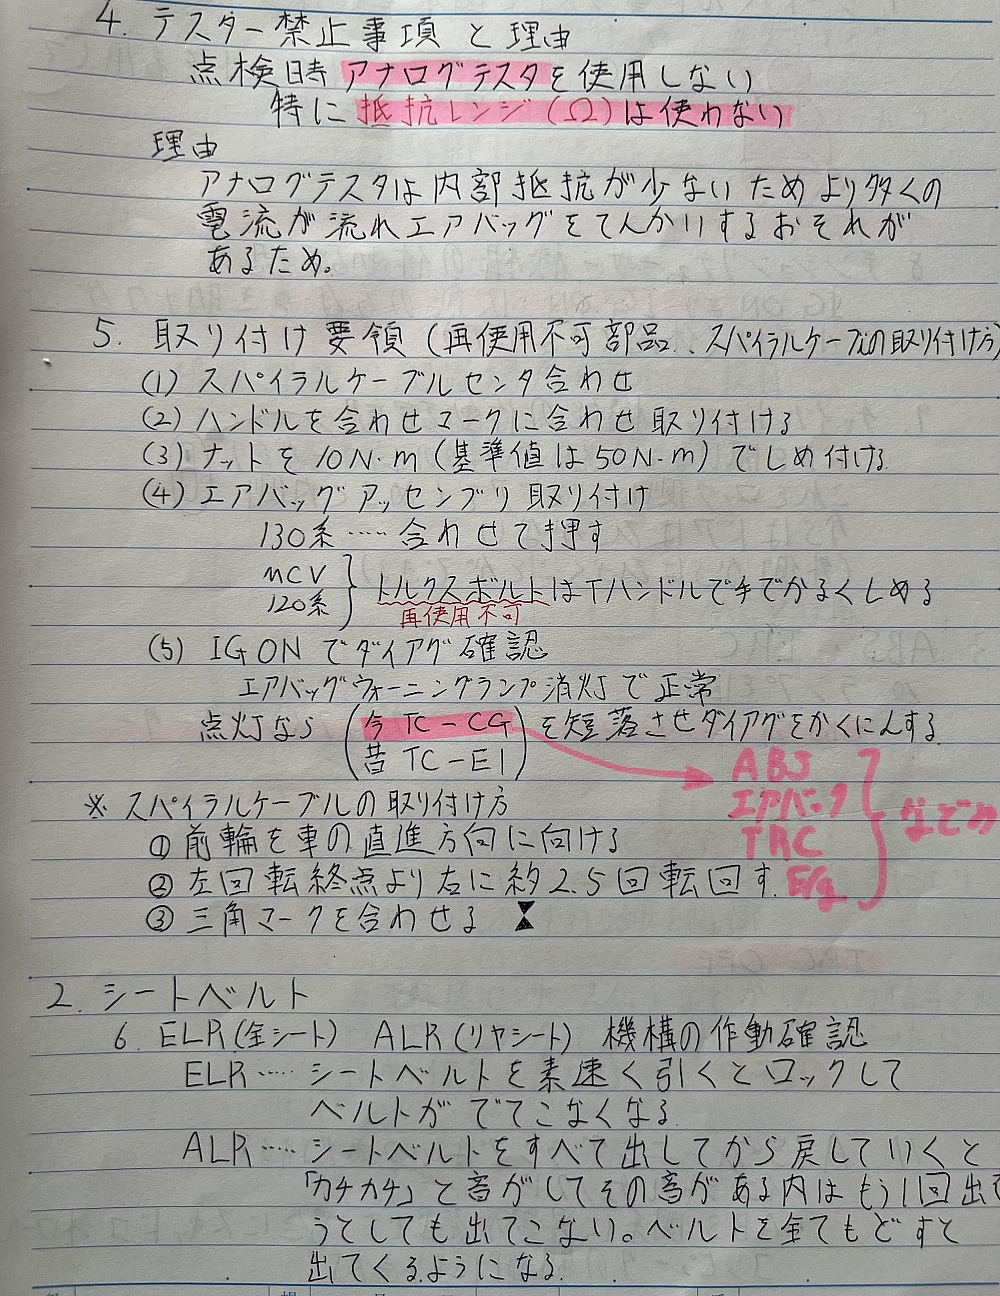 4. テスター禁止事項と理由
点検時アナログテスタを使用しない
特に抵抗レンジ(Ω)は使わない
理由
アナログテスタは内部抵抗が少ないためより多くの
電流が流れエアバッグをてんかいするおそれが
あるため。
5. 取り付け要領(再使用不可部品、スパイラルケーブルの取り付け方)
(1) スパイラルケーブルセンタ合わせ
(2) ハンドルを合わせマークに合わせ取り付ける
(3) ナットを10N・m(基準値は50N・m)でしめ付ける
(4) エアバッグアッセンブリ取り付け
130系……合わせて押す
MCV
120系
} トルクスボルトはTハンドルで手でかるくしめる
再使用不可
(5) IG ONでダイアグ確認
エアバッグウォーニングランプ消灯で正常
点灯なら(今 TC-CG)を短落させダイアグをかくにんする
(昔 TC-E1)
ABS
エアバック
TRC
E/g
} などの
※ スパイラルケーブルの取り付け方
① 前輪を車の直進方向に向ける
② 左回転終点より右に約2.5回転回す.
③ 三角マークを合わせる
2. シートベルト
6. ELR(全シート) ALR(リヤシート) 機構の作動確認
ELR…… シートベルトを素速く引くとロックして
ベルトがでてこなくなる
ALR…… シートベルトをすべて出してから戻していくと
「カチカチ」と音がしてその音がある内はもう1回出そ
うとしても出てこない。ベルトを全てもどすと
出てくるようになる.